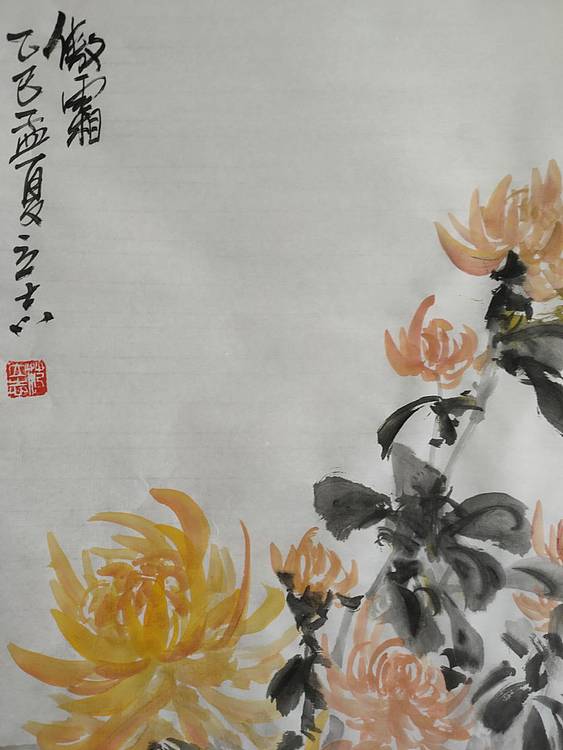 傲霜
乙巳孟夏立志